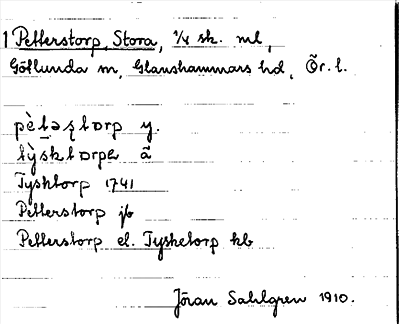 1 Petterstorp, Stora, 1/4 sk. ml,
Götlunda sn, Glanshammars hd, Ör. l.
pètəʂtɒrp y.
tỳsktɒrpɐ ã
Tysktorp 1741
Petterstorp jb
Petterstorp el. Tysketorp kb
Jöran Sahlgren 1910.